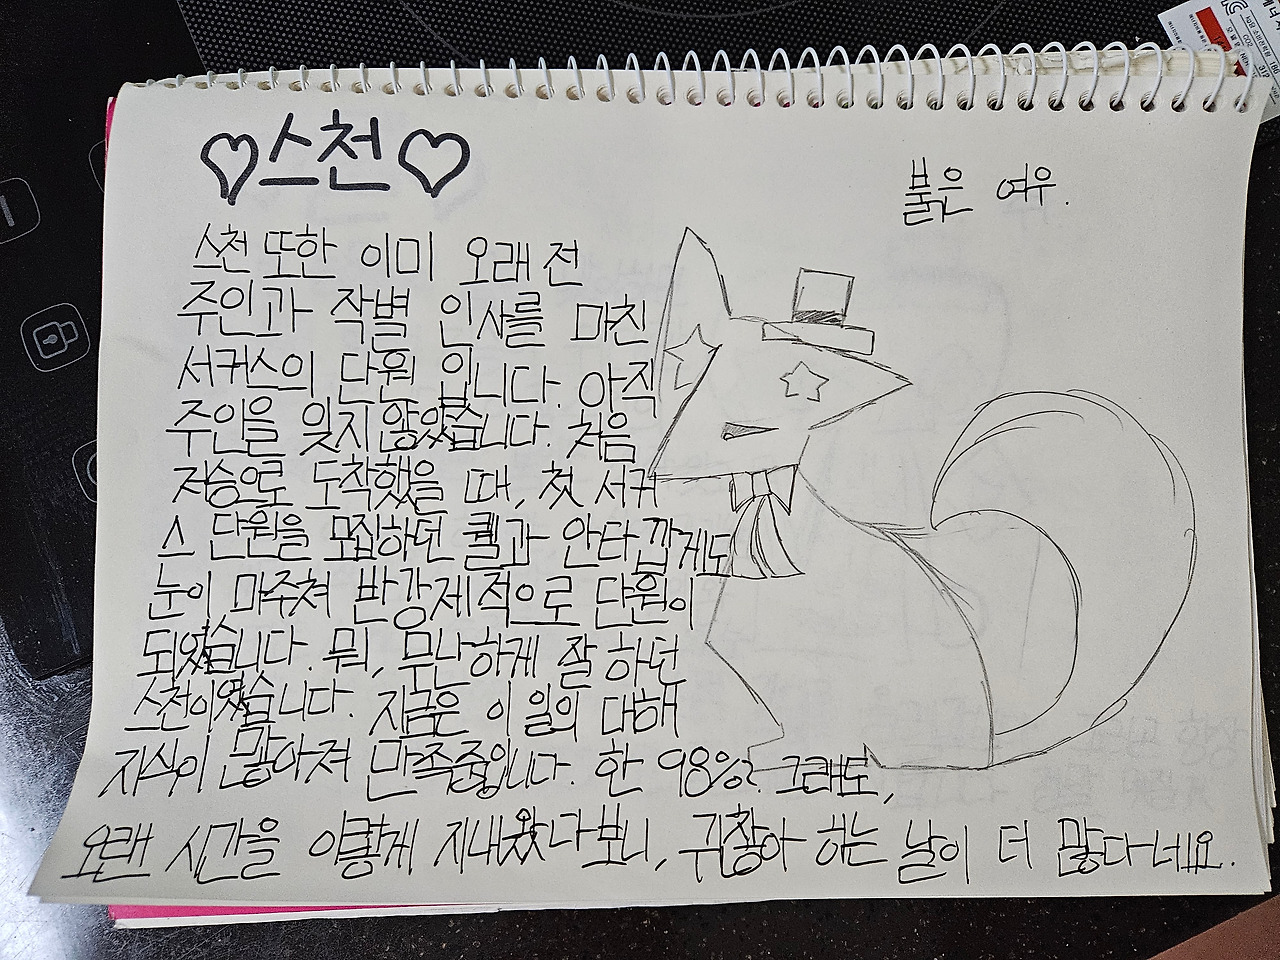 ♡스천♡
붉은 여우.
스천 또한 이미 오래 전
주인과 작별 인사를 마친
서커스의 단원 입니다. 아직
주인을 잊지 않았습니다. 처음
저승으로 도착했을 때, 첫 서커
스 단원을 모집하던 퀠과 안타깝게도
눈이 마주쳐 반강제적으로 단원이
되었습니다. 뭐, 무난하게 잘 하던
스천이였습니다. 지금은 이 일의 대해
지식이 많아져 만족중입니다. 한 98%? 그래도,
오랜 시간을 이렇게 지내왔다보니, 귀찮아 하는 날이 더 많다네요.